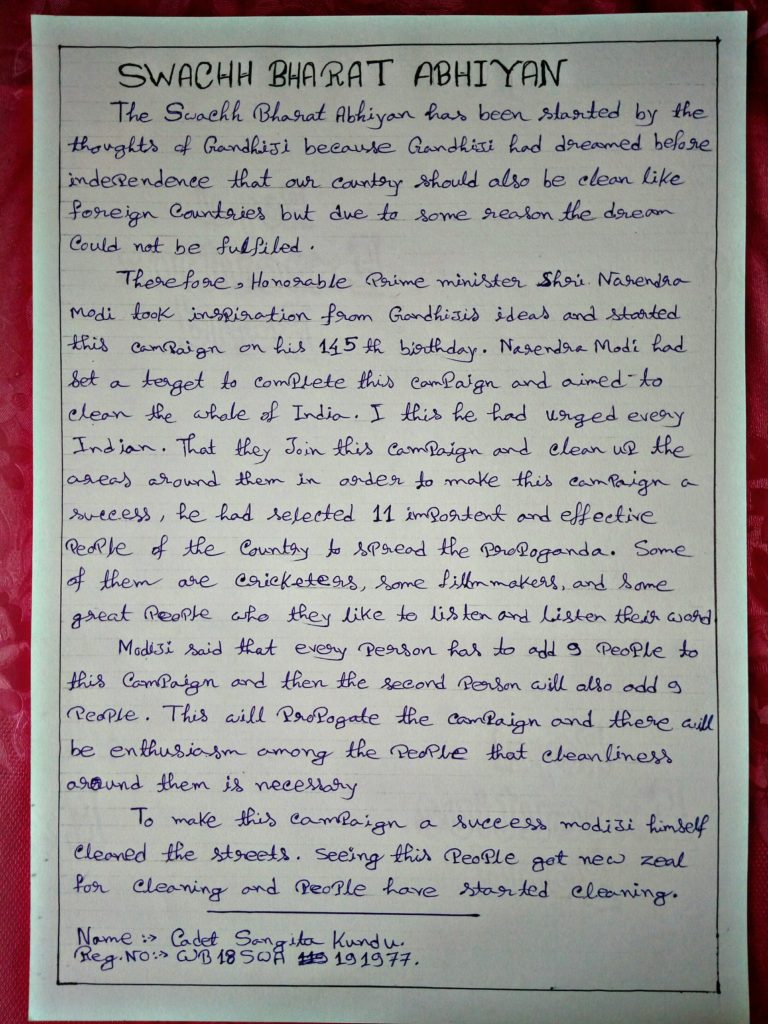 SWACHH BHARAT ABHIYAN
The Swachh Bharat Abhiyan has been started by the
thoughts of Gandhiji because Gandhiji had dreamed before
independence that our country should also be clean like
foreign Countries but due to some reason the dream
Could not be fulfiled.
Therefore, Honorable Prime minister Shri Narendra
Modi took inspiration from Gandhiji's ideas and started
this campaign on his 145th birthday. Narendra Modi had
Set a terget to complete this campaign and aimed to
clean the whole of India. I this he had urged every
Indian. That they Join this campaign and clean up the
areas around them in order to make this campaign a
success, he had selected 11 importent and effective
People of the Country to spread the Propoganda. Some
of them are cricketers, some filmmakers, and some
great People who they like to listen and listen their word
Modiji said that every Person has to add 9 People to
this Campaign and then the second Person will also add 9
People. This will Propogate the campaign and there will
be enthusiasm among the People that cleanliness
around them is necessary
To make this campaign a success modiji himself
Cleaned the streets. Seeing this People got new zeal
for Cleaning and People have started Cleaning.
Name :-> Cadet Sangita Kundu.
Reg.NO:-> WB18SWA 191977.